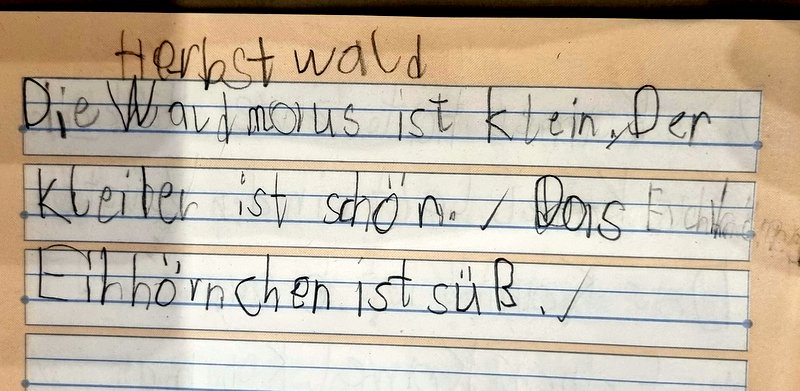 Herbstwald
Die Waldmaus ist klein. Der
Kleiber ist schön. Das
Eihhörnchen ist süß.